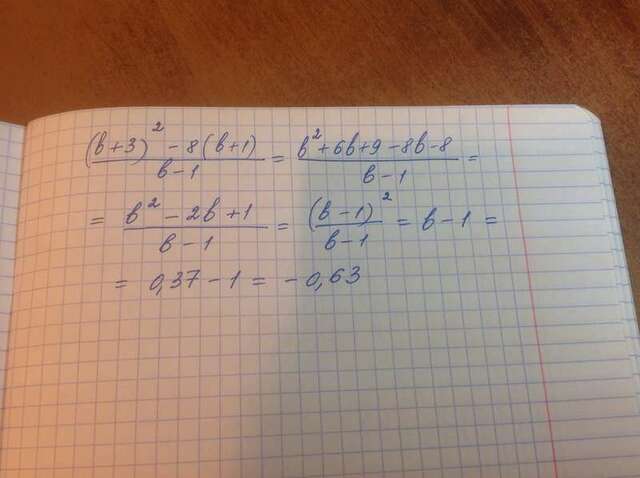 (b+3)² - 8(b+1) / b-1 = b²+6b+9-8b-8 / b-1 =
= b² - 2b+1 / b-1 = (b-1)² / b-1 = b-1 =
= 0,37-1 = -0,63